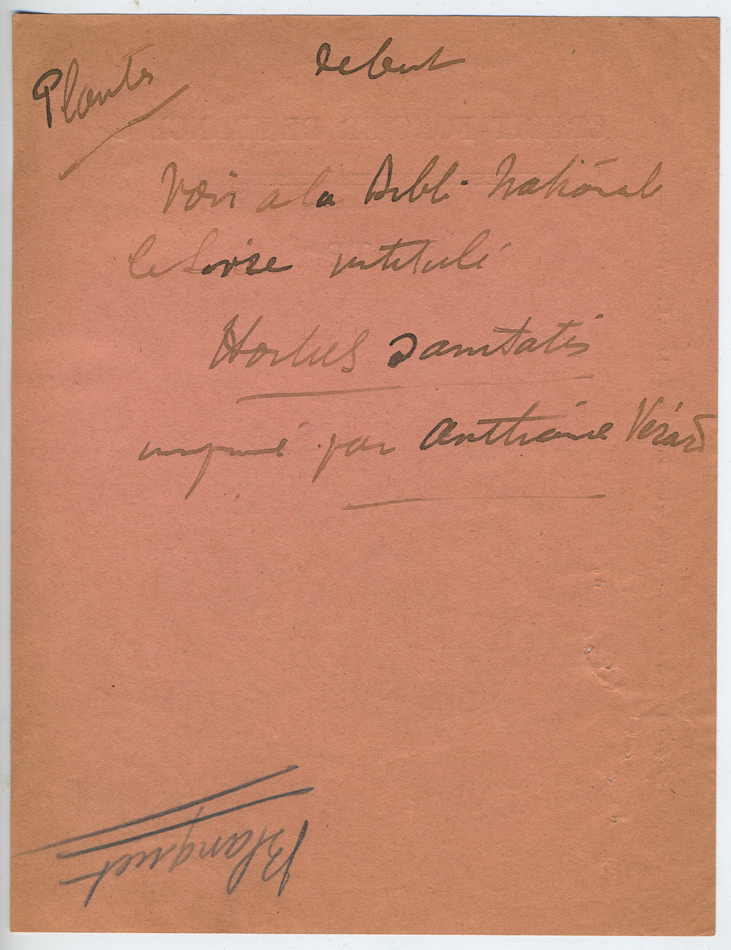 Plantes
debut
Voir a la Bibl. Nationale
le Livre intitulé
Hortus Sanitatis
imprimé par Anthoine Vérard
Blanquet